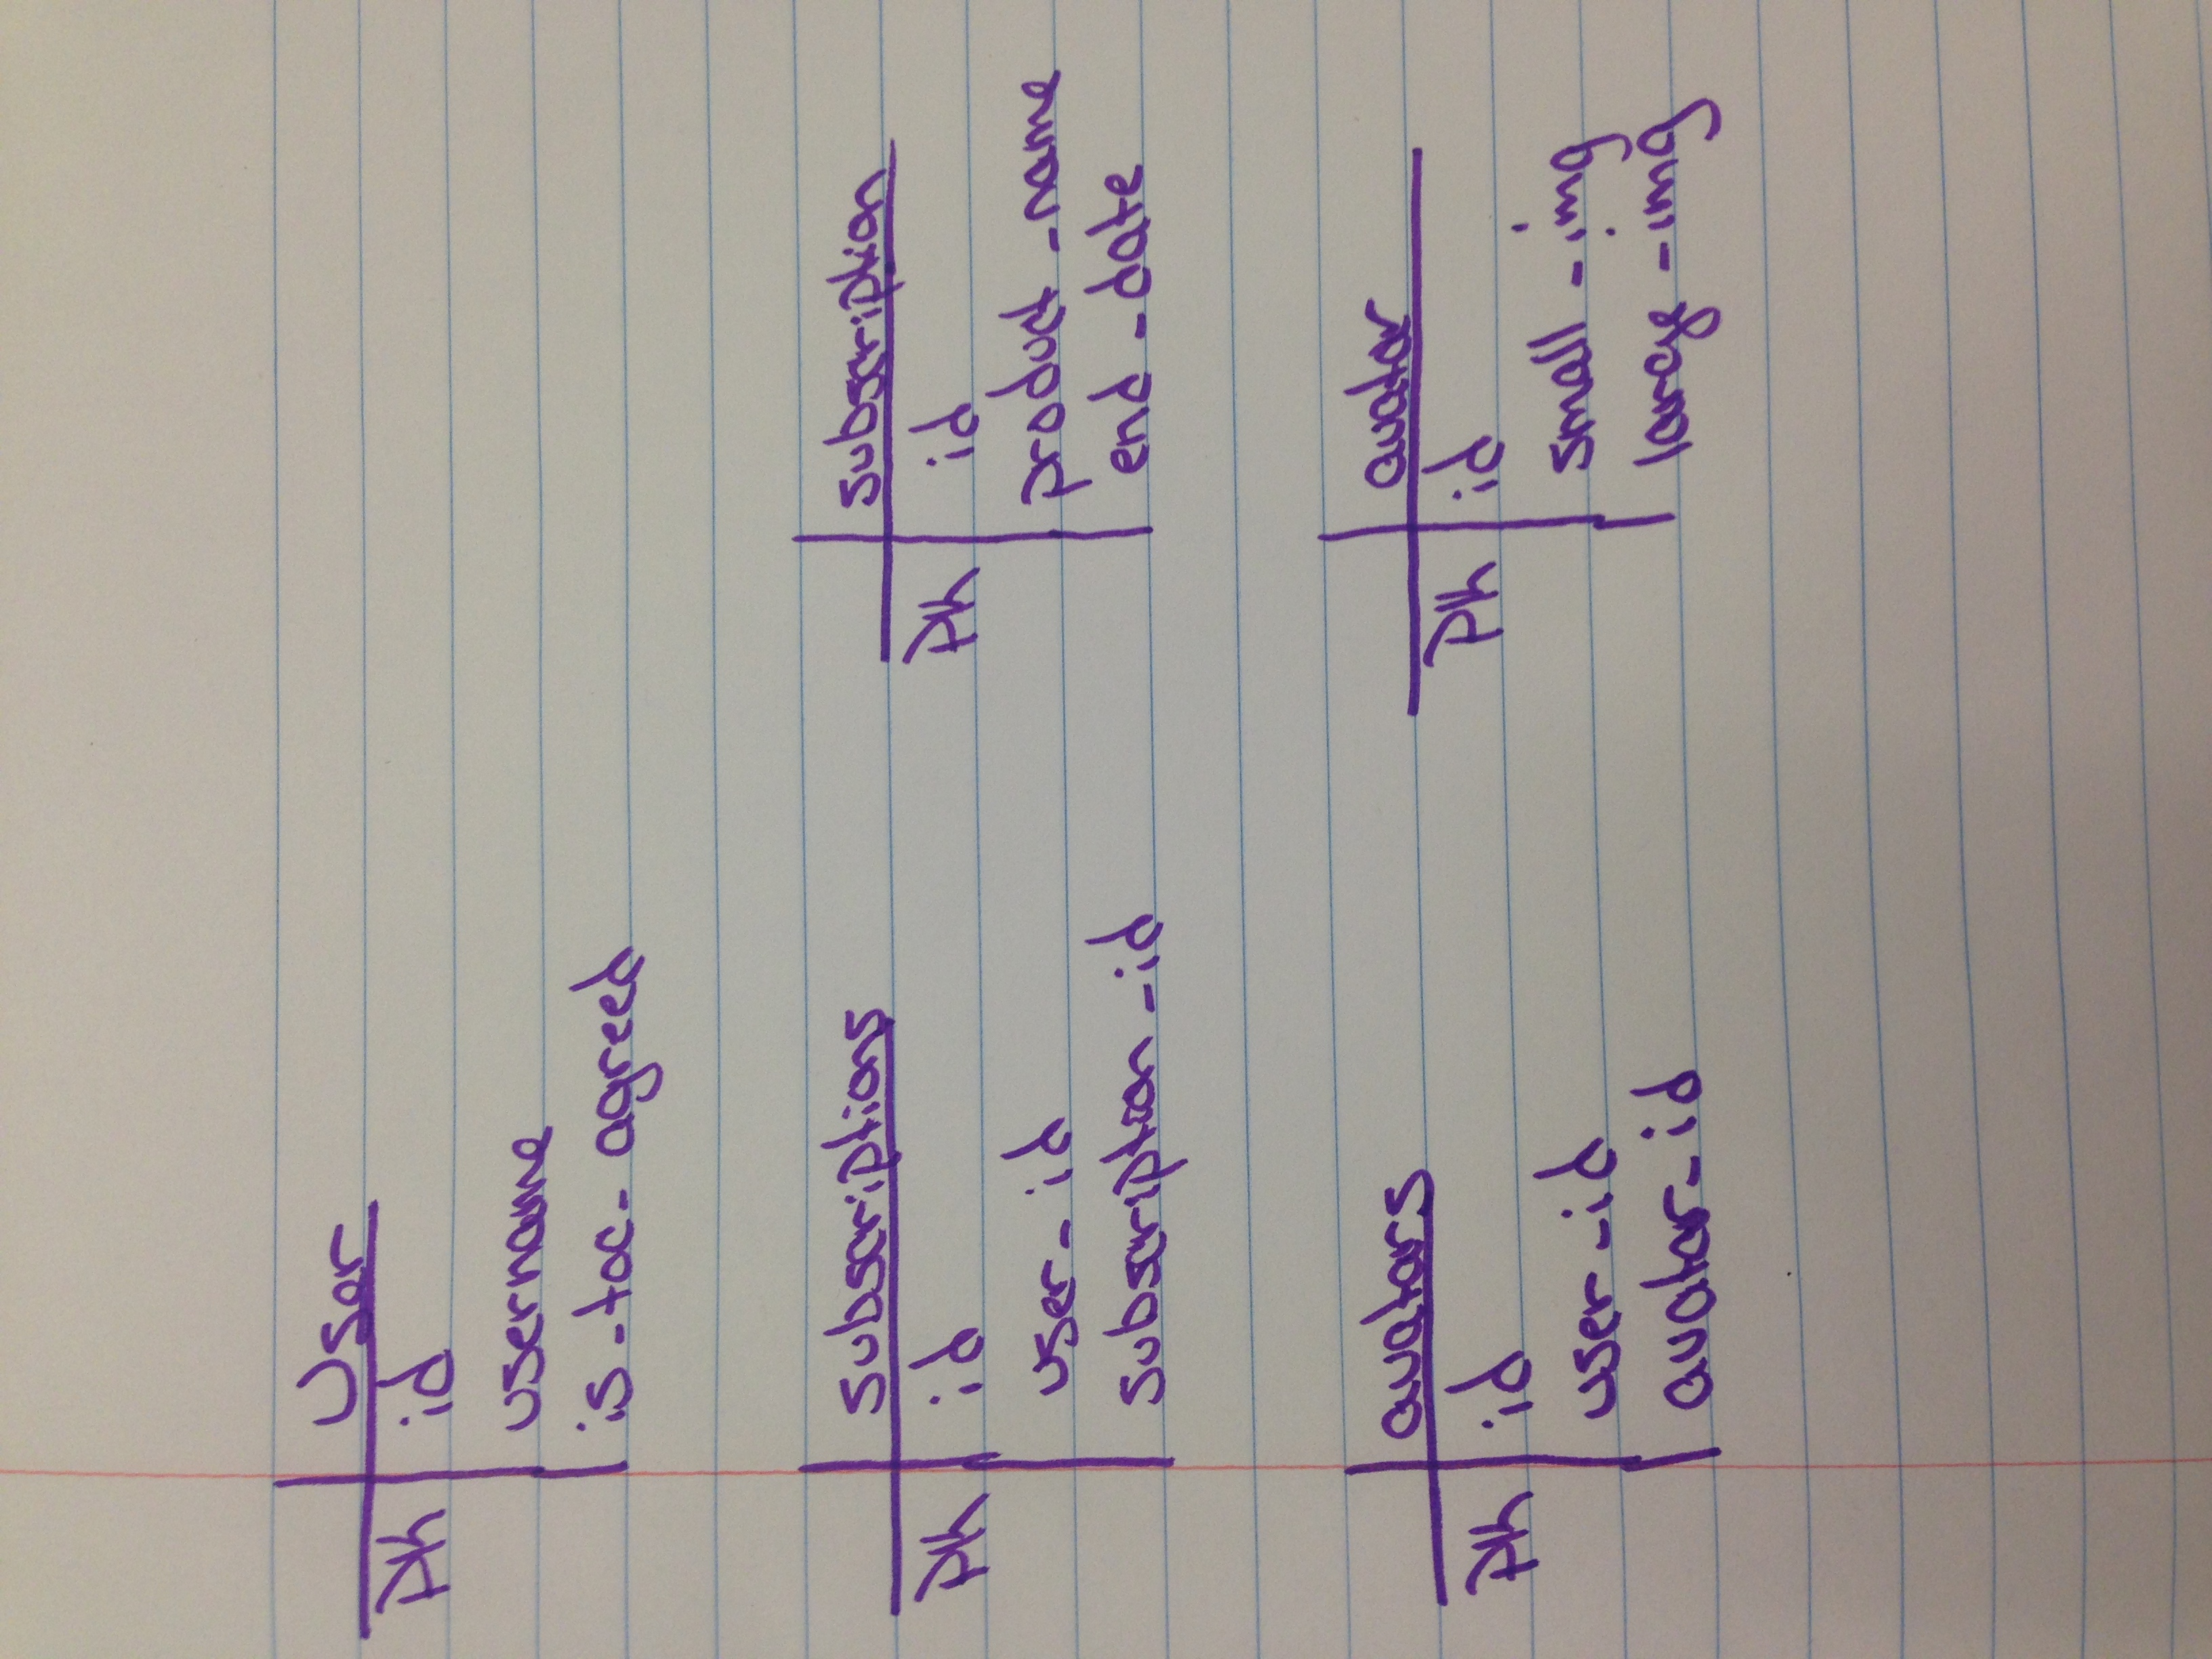 User
PK id
username
is_toc_agreed
subscriptions
PK id
user_id
subscription_id
subscription
PK id
product_name
end_date
avatars
PK id
user_id
avatar_id
avatar
PK id
small_img
large_img